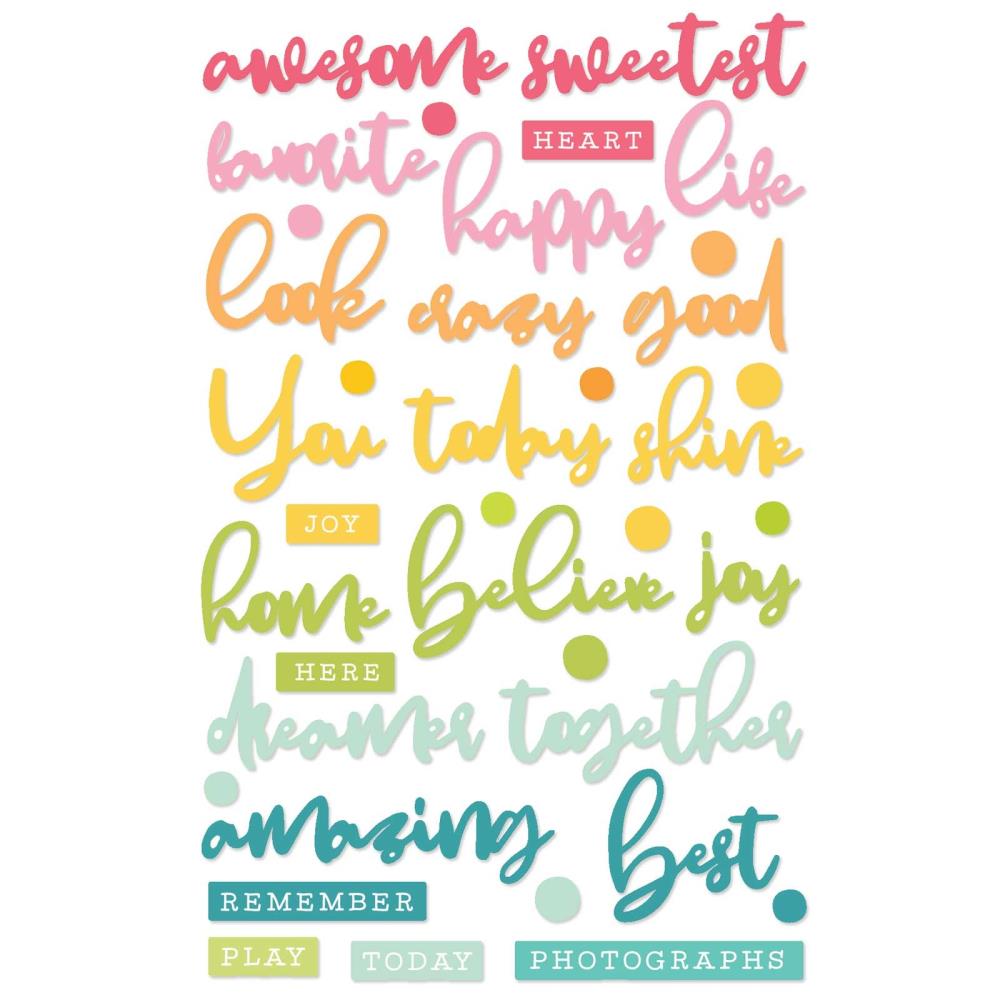 awesome sweetest
favorite HEART life
happy
look crazy good
You today shine
JOY
home believe joy
HERE
dreamer together
amazing best
REMEMBER
PLAY TODAY PHOTOGRAPHS